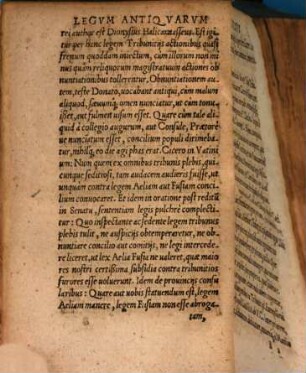 LEGVM ANTIQVARVM
rei author est Dionysius Halicarnasseus. Est igi-
tur per hanc legem Tribuniciis actionibus quasi
frenum quoddam iniectum, cùm illorum non mi-
nus quàm reliquorum magistratuum actiones ob-
nuntiationibus tollerentur. Obnuntiationem au-
tem, teste Donato, uocabant antiqui, cùm malum
aliquod, sæuumq́; omen nunciatur, ut cum tonu-
isset, aut fulmen uisum esset. Quare cum tale ali-
quid à collegio augurum, aut Consule, Prætore
ue nunciatum esset, concilium populi dirimeba-
tur, nihilq́; eo die agi phas erat. Cicero in Vatini
um: Num quem ex omnibus tribunis plebis, qui-
cunque seditiosi, tam audacem audieris fuisse, ut
unquam contra legem Aeliam aut Fusiam conci-
lium conuocaret. Et idem in oratione post reditũ
in Senatu, sententiam legis pulchre complecti-
tur: Quo inspectante ac sedente legem tribunis
plebis tulit, ne auspicijs obtemperaretur, ne ob-
nuntiare concilio aut comitijs, ne legi intercede
re liceret, ut lex Aelia Fusia ne ualeret, quæ maio
res nostri certissima subsidia contra tribunicios
furores esse uoluerunt. Idem de prouincijs consu
laribus: Quare aut uobis statuendum est, legem
Aeliam manere, legem Fusiam non esse abroga
tam,